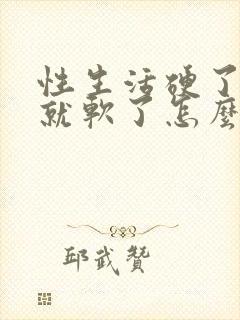 性生活硬了
就軟了怎麼
邱武贊